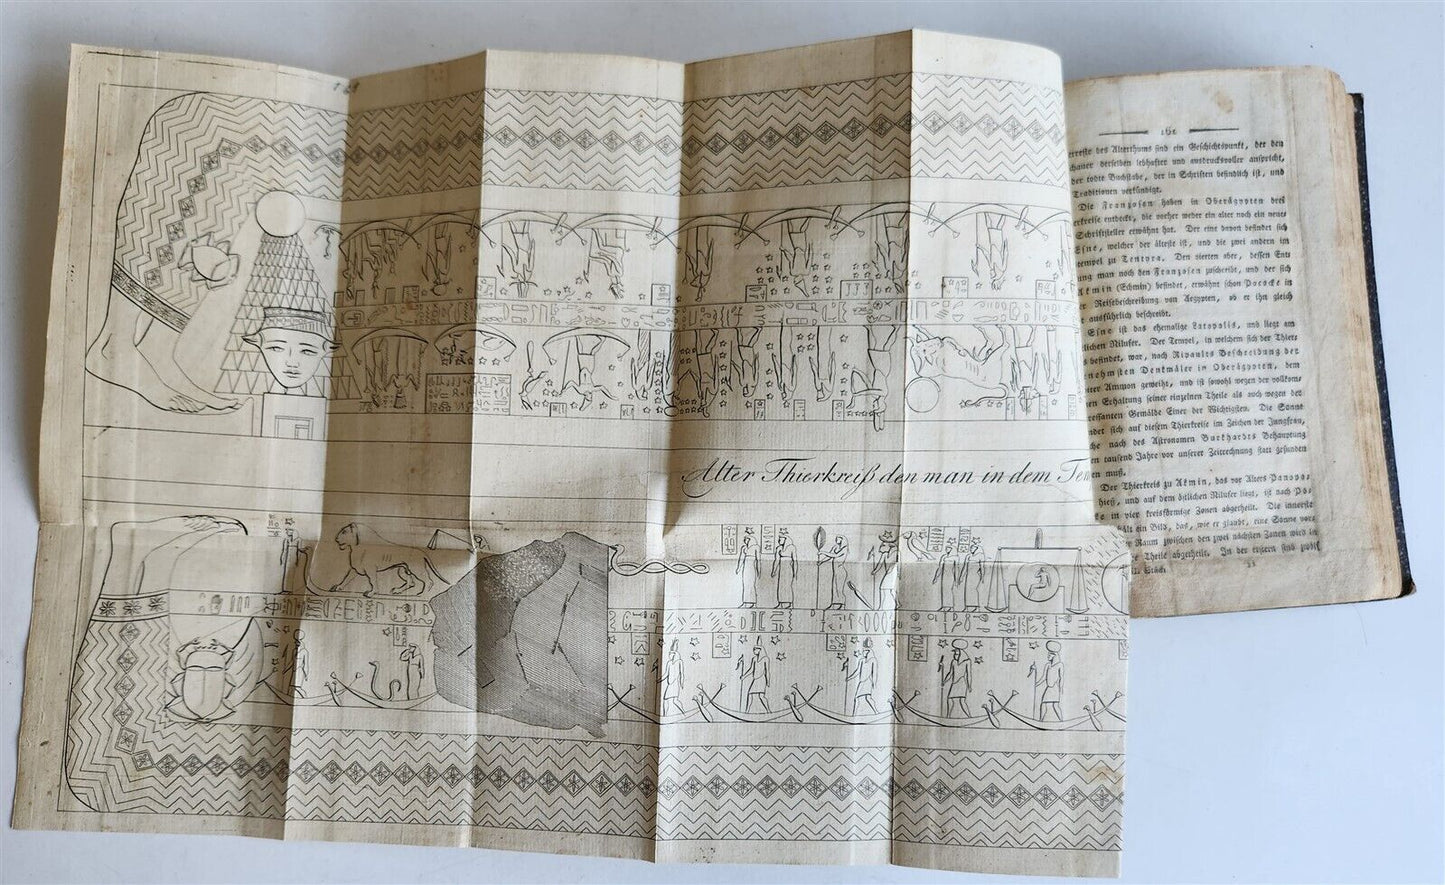 Alter Thierkreiß den man in dem Tem
161
erreste des Alterthums sind ein Geschichtspunkt, der den
schauer derselben lebhafter und ausdrucksvoller anspricht,
der todte Buchstabe, der in Schriften befindlich ist, und
Traditionen verkündigt.
Die Franzosen haben in Oberägypten drei
erkreise entdeckt, die vorher weder ein alter noch ein neuer
Schriftsteller erwähnt hat. Der eine davon befindet sich
Esne, welcher der älteste ist, und die zwei andern im
tempel zu Tentyra. Den vierten aber, dessen Ent
ung man noch den Franzosen zuschreibt, und der sich
Akmin (Echmin) befindet, erwähnt schon Pococke in
Reisebeschreibung von Aegypten, ob er ihn gleich
ausführlich beschreibt.
Esne ist das ehemalige Latopolis, und liegt am
lichen Nilufer. Der Tempel, in welchem sich der Thier
befindet, war, nach Ripaults Beschreibung der
nehmsten Denkmäler in Oberägypten, dem
iter Ammon geweiht, und ist sowohl wegen der vollkom
en Erhaltung seiner einzelnen Theile als auch wegen der
ressanten Gemälde Einer der Wichtigsten. Die Sonne
ndet sich auf diesem Thierkreise im Zeichen der Jungfrau,
che nach des Astronomen Burkhardts Behauptung
en tausend Jahre vor unserer Zeitrechnung statt gefunden
en muß.
Der Thierkreis zu Akmin, das vor Alters Panopo
hieß, und auf dem östlichen Nilufer liegt, ist nach Po
in vier kreisförmige Zonen abgetheilt. Die innerste
hält ein Bild, das, wie er glaubt, eine Sonne vors
Raum zwischen den zwei nächsten Zonen wird in
Theile abgetheilt. In der ersten sind zwölf
Stück